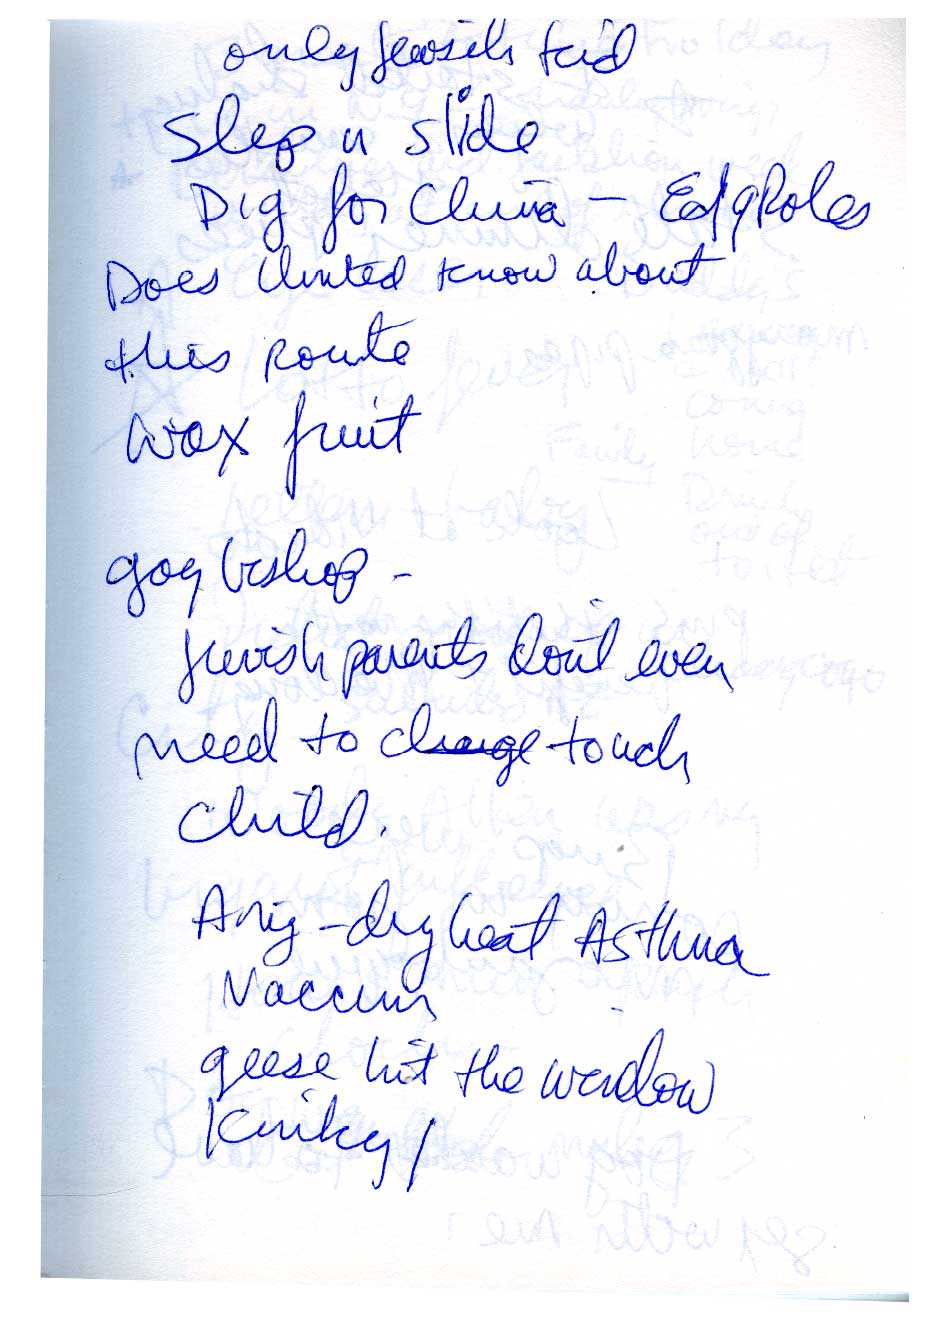 only Jewish kid
Slep n slide
Dig for China -
Does United know about
this route
Wax fruit
gay bishop -
Jewish parents don't even
need to change touch
child.
Ariz - dry heat Asthma
Vaccum
geese hit the window
Kinky /